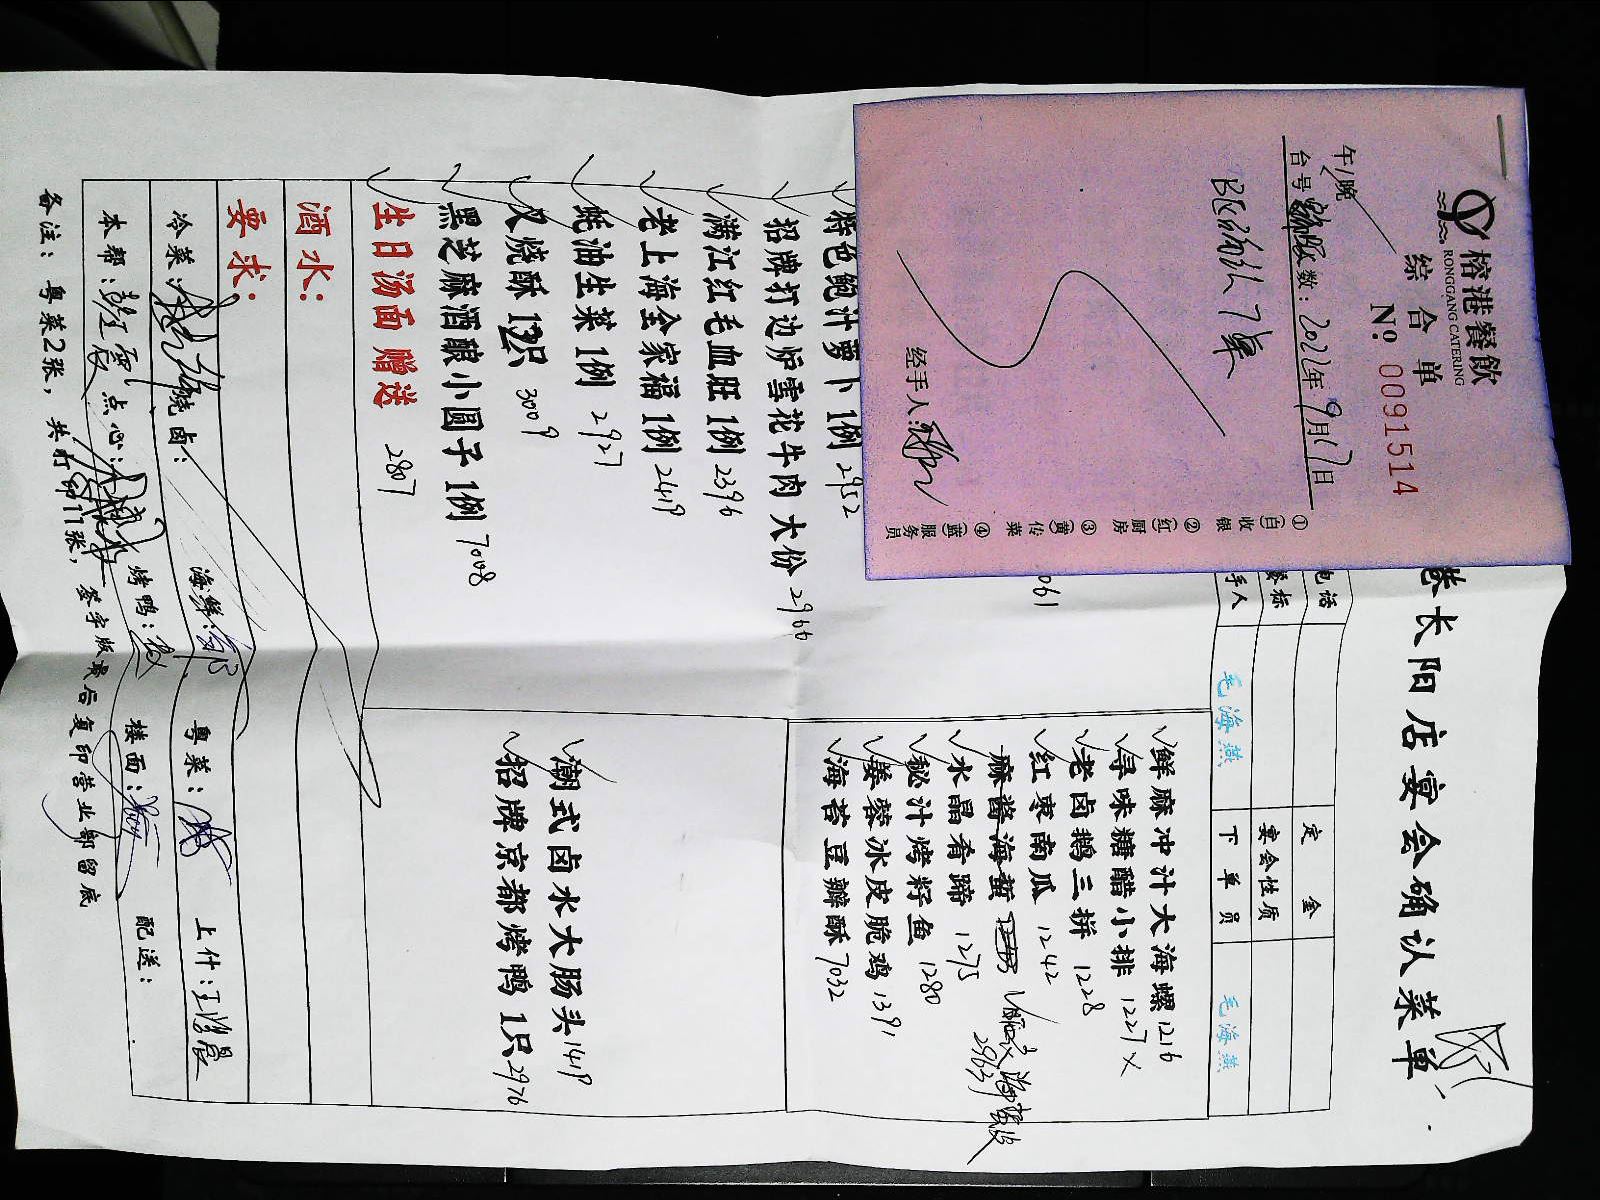 榕港餐飲
RONGGANG CATERING
综合单
No 0091514
午/晚
台号 数: 2022年9月17日
经手人:
①(白)收银
②(红)厨房
③(黄)传菜
④(蓝)服务员
港长阳店宴会确认菜单
电话
定金
餐标
宴会性质
手人
毛海燕
下单员
毛海燕
鲜麻冲汁大海螺 1216
寻味糖醋小排 1227 X
老卤鹅三拼 1228
红枣南瓜 1242
麻酱海蜇
2963
水晶肴蹄 1275
秘汁烤籽鱼 1280
姜蓉冰皮脆鸡 1391
海苔豆瓣酥 7032
潮式卤水大肠头 1419
招牌京都烤鸭1只 2976
061
特色鲍汁萝卜1例 2952
招牌打边炉雪花牛肉大份 2966
满江红毛血旺1例 2396
老上海全家福1例 2419
蚝油生菜1例 2927
叉烧酥 只 3009
黑芝麻酒酿小圆子1例 7008
生日汤面 赠送 2807
酒水:
要求:
冷菜: 烧卤: 海鲜: 粤菜: 上什:
本帮: 点心: 烤鸭: 楼面: 配送:
备注: 粤菜2张, 共打印11张, 签字版最后复印营业部留底